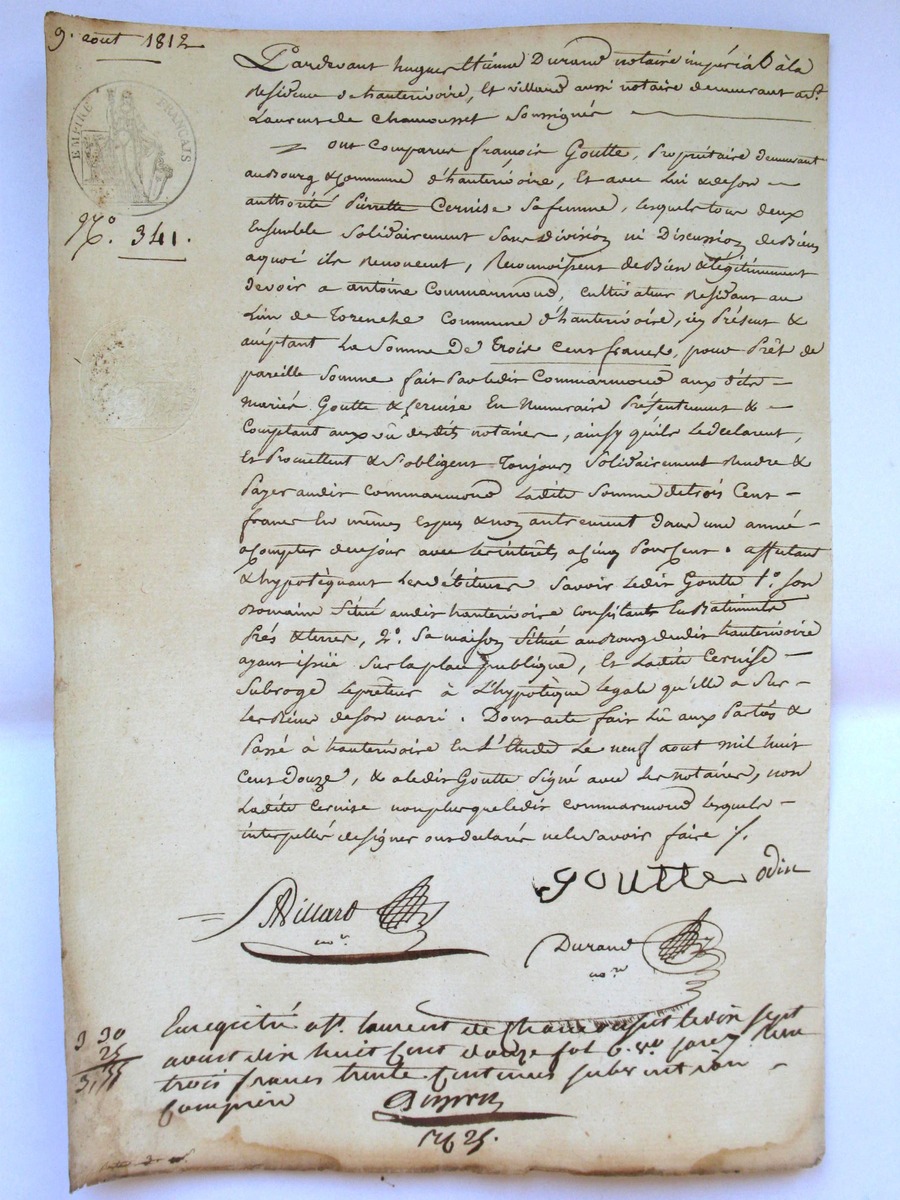 9. aout 1812
EMPIRE FRANÇAIS
N.º 341.
Pardevant hugues Etienne Durand notaire impérial à la
Residence d'hauterivoire, Et villard aussi notaire demeurant a St.
Laurent de Chamousset Soussignés
ont Comparus françois Goutte, Propriétaire demeurant
au Bourg & Commune d'hauterivoire, Et avec Lui & de son
authorité Pierrette Cervise Sa femme, lesquels tous deux
Ensemble Solidairement Sans Division ni Discussion de Biens
a quoi ils Renoncent, Reconnoissent de Bien & légitimement
devoir a antoine Commarmond, cultivateur Residant au
Lieu de Torenche Commune d'hauterivoire, ici Présent &
acceptant La Somme de Trois Cent francs, pour Prêt de
pareille Somme fait Par ledit Commarmond aux dits
mariés Goutte & Cervise En Numeraire Présentement &
Comptant aux vû desdits notaires, ainsy qu'ils Le declarent,
Et Promettent & S'obligent Toujours Solidairement Rendre &
Payer audit Commarmond Ladite Somme de trois Cent
francs En mêmes Especes & non autrement dans une année
a Compter de ce jour avec les interêts a Cinq Pour Cent. affectant
& hypotèquant Les débiteurs Savoir Ledit Goutte 1.º Son
Domaine Situé audit hauterivoire Consistant En Batiments
Prés & terres, 2.º Sa maison Située au Bourg dudit hauterivoire
ayant issüe Sur la place publique, Et Ladite Cervise
Subroge Le prêteur à L'hypotèque Legale qu'elle a Sur
Les Biens de Son mari. Dont acte fait Lû aux Parties &
Passé à hauterivoire En L'Etude Le neuf aout mil huit
Cent Douze, & a Ledit Goutte Signé avec Les notaires, non
Ladite Cervise non plus que ledit Commarmond lesquels
interpellés de signer ont declarés ne le savoir faire ./.
Goutte odin
Villard
no.re
Durand
no.re
Enregistré a St. laurent de Chamousset le dix sept
aoust dix huit Cent douze fol 6. Vo. Reçu
trois francs trente Centimes subvention
Comprise
3 30
25